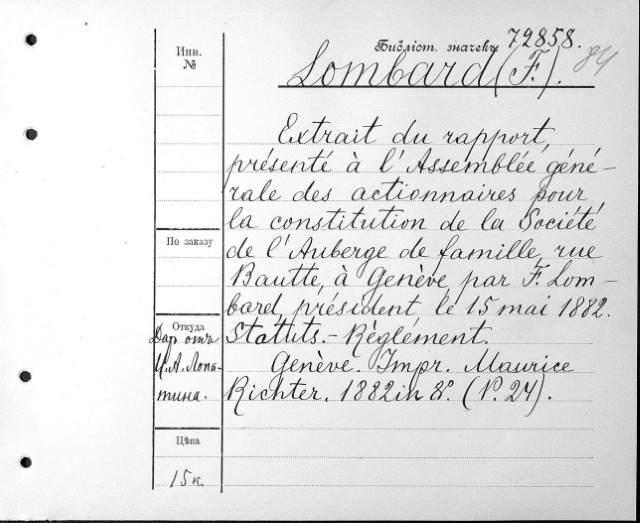 Инв.
№
Библіот. значекъ 72858.
84
Lombard (F.).
Extrait du rapport,
présenté à l'Assemblée géné-
rale des actionnaires pour
la constitution de la Société
de l'Auberge de famille, rue
Bautte, à Genève, par F. Lom-
bard, président, le 15 mai 1882.
Statuts.-Règlément.
Genève. Impr. Maurice
Richter. 1882 in 8°. (P. 24).
По заказу
Откуда
Дар отъ
И.А. Лопа-
тина.
Цѣна
15 к.